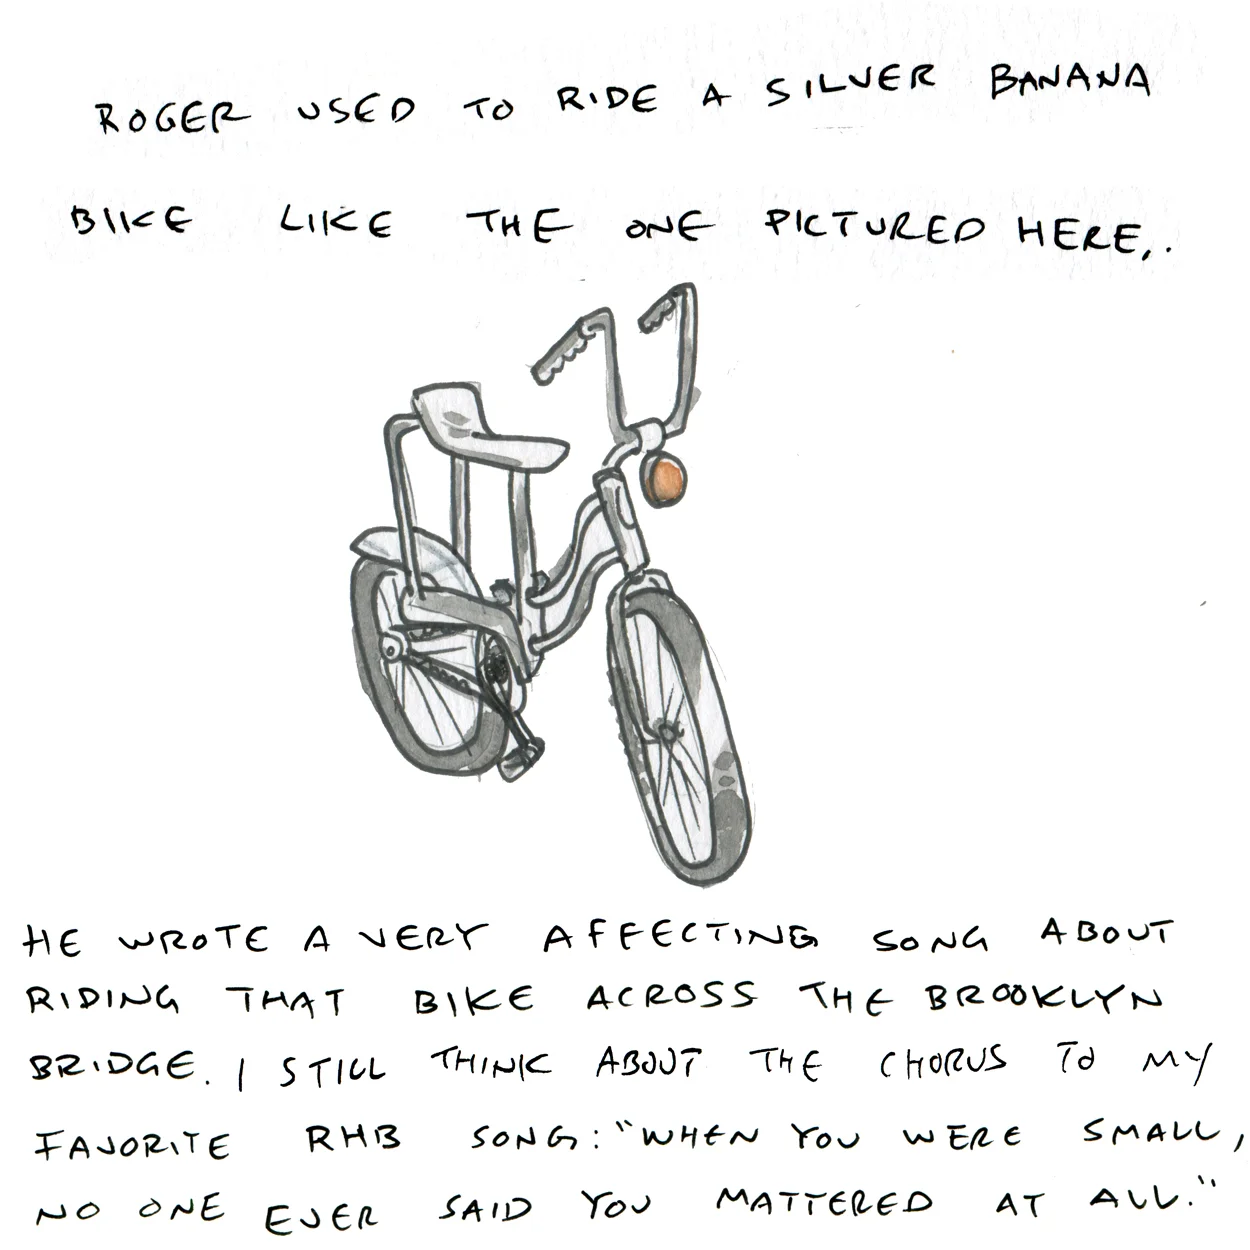 ROGER USED TO RIDE A SILVER BANANA
BIKE LIKE THE ONE PICTURED HERE,.
HE WROTE A VERY AFFECTING SONG ABOUT
RIDING THAT BIKE ACROSS THE BROOKLYN
BRIDGE. I STILL THINK ABOUT THE CHORUS TO MY
FAVORITE RHB SONG: "WHEN YOU WERE SMALL,
NO ONE EVER SAID YOU MATTERED AT ALL."